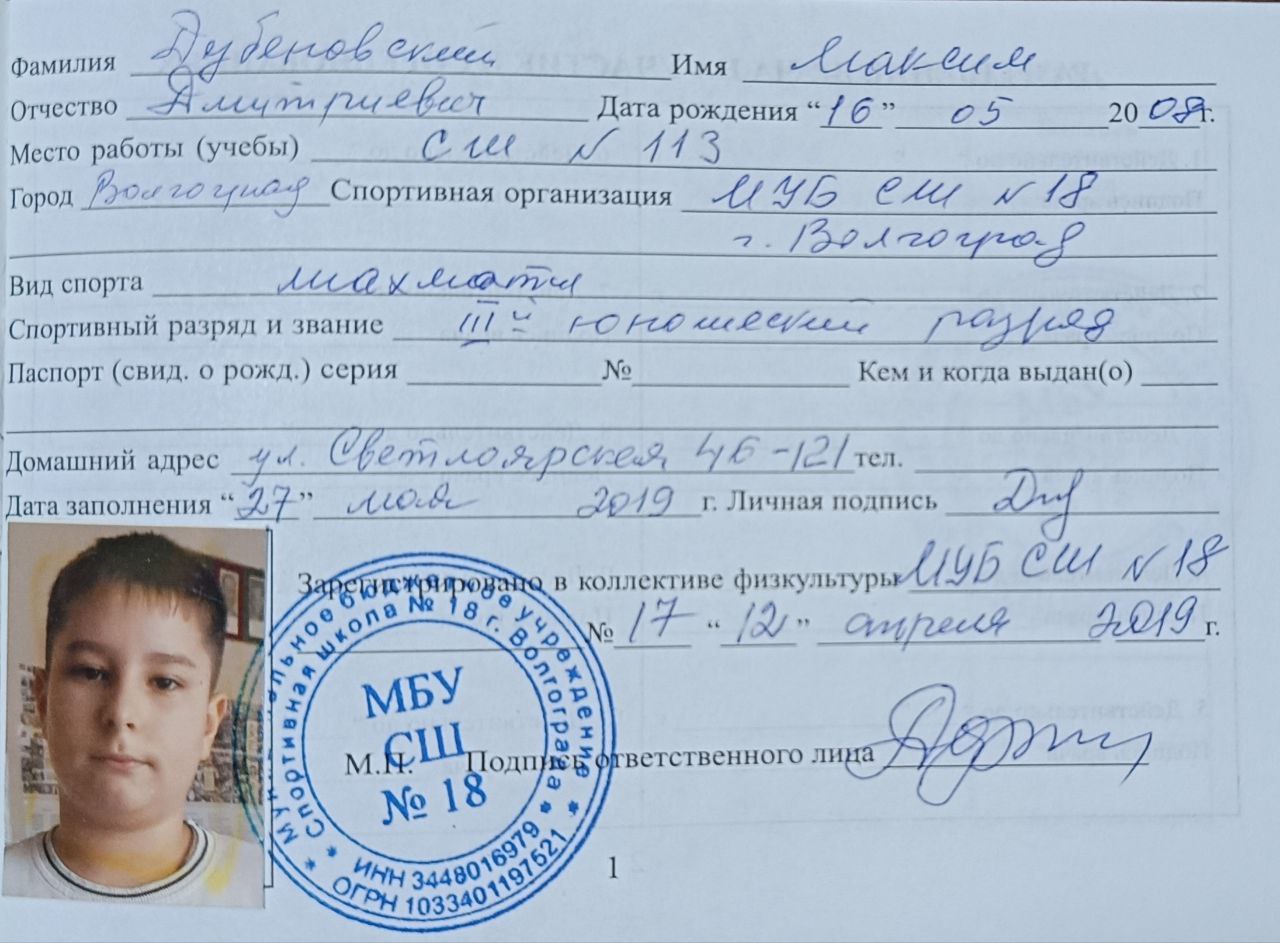 Фамилия Дубеновский Имя Максим
Отчество Дмитриевич Дата рождения “16” 05 2008г.
Место работы (учебы) СШ № 113
Город Волгоград Спортивная организация МУБ СШ № 18
г. Волгоград
Вид спорта шахматы
Спортивный разряд и звание IIIй юношеский разряд
Паспорт (свид. о рожд.) серия № Кем и когда выдан(о)
Домашний адрес ул. Светлоярская 46-121 тел.
Дата заполнения “27” мая 2019 г. Личная подпись
Зарегистрировано в коллективе физкультуры МУБ СШ № 18
№ 17 “12” апреля 2019 г.
М.П. Подпись ответственного лица
Муниципальное бюджетное учреждение
Спортивная школа № 18 г. Волгограда
МБУ
СШ
№ 18
ИНН 3448016979
ОГРН 1033401197621
1